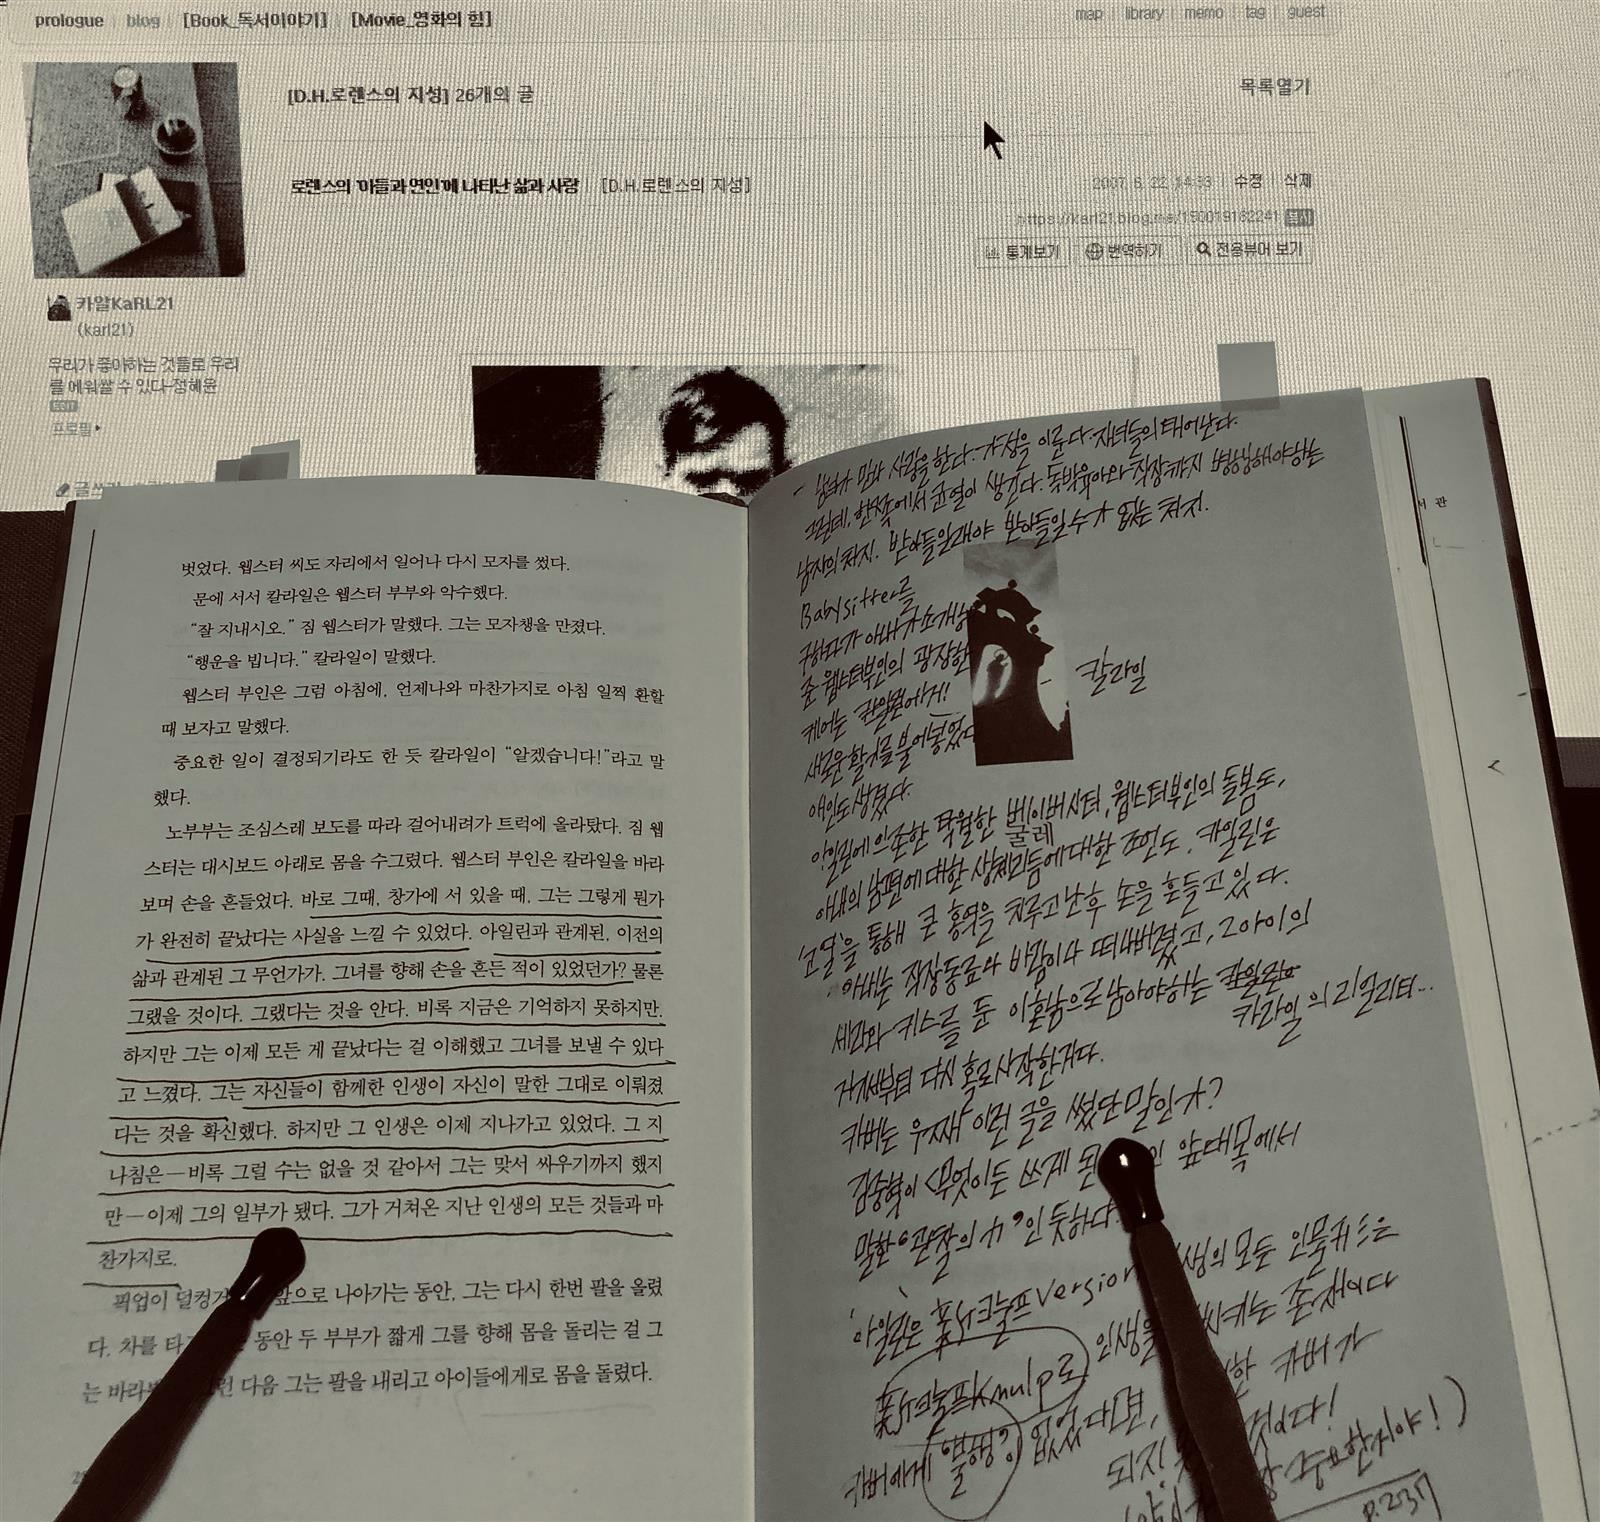 prologue | blog | [Book_독서이야기] | [Movie_영화의 힘]
map | library | memo | tag | guest
[D.H.로렌스의 지성] 26개의 글
목록열기
로렌스의 '아들과 연인'에 나타난 삶과 사랑 | [D.H.로렌스의 지성]
2007. 6. 22. 14:33 | 수정 | 삭제
https://karl21.blog.me/150019162241 복사
통계보기 번역하기 전용뷰어 보기
카알KaRL21
(karl21)
우리가 좋아하는 것들로 우리
를 에워쌀 수 있다-정혜윤
EDIT
프로필
벗었다. 웹스터 씨도 자리에서 일어나 다시 모자를 썼다.
문에 서서 칼라일은 웹스터 부부와 악수했다.
“잘 지내시오.” 짐 웹스터가 말했다. 그는 모자챙을 만졌다.
“행운을 빕니다.” 칼라일이 말했다.
웹스터 부인은 그럼 아침에, 언제나와 마찬가지로 아침 일찍 환할
때 보자고 말했다.
중요한 일이 결정되기라도 한 듯 칼라일이 “알겠습니다!”라고 말
했다.
노부부는 조심스레 보도를 따라 걸어내려가 트럭에 올라탔다. 짐 웹
스터는 대시보드 아래로 몸을 수그렸다. 웹스터 부인은 칼라일을 바라
보며 손을 흔들었다. 바로 그때, 창가에 서 있을 때, 그는 그렇게 뭔가
가 완전히 끝났다는 사실을 느낄 수 있었다. 아일린과 관계된, 이전의
삶과 관계된 그 무언가가. 그녀를 향해 손을 흔든 적이 있었던가? 물론
그랬을 것이다. 그랬다는 것을 안다. 비록 지금은 기억하지 못하지만.
하지만 그는 이제 모든 게 끝났다는 걸 이해했고 그녀를 보낼 수 있다
고 느꼈다. 그는 자신들이 함께한 인생이 자신이 말한 그대로 이뤄졌
다는 것을 확신했다. 하지만 그 인생은 이제 지나가고 있었다. 그 지
나침은—비록 그럴 수는 없을 것 같아서 그는 맞서 싸우기까지 했지
만—이제 그의 일부가 됐다. 그가 거쳐온 지난 인생의 모든 것들과 마
찬가지로.
픽업이 덜컹거 앞으로 나아가는 동안, 그는 다시 한번 팔을 올렸
다. 차를 타 동안 두 부부가 짧게 그를 향해 몸을 돌리는 걸 그
는 바라 런 다음 그는 팔을 내리고 아이들에게로 몸을 돌렸다.
- 남녀가 만나 사랑을 한다. 가정을 이룬다. 자녀들이 태어난다.
그런데, 한쪽에서 균열이 생긴다. 독박육아와 직장까지 병행해야하는
남자의 처지. 받아들일래야 받아들일 수가 없는 처지.
Babysitter를
구하다가 아내가 소개해
준 웹스터부인의 굉장한
케어는 칼라일에게!
새로운 활기를 불어넣었다
애인도 생겼다.
칼라일
아일린에 의존한 탁월한 베이비시터, 웹스터부인의 돌봄도,
굴레
아내의 남편에 대한 에 대한 조언도. 카일린은
'고열'을 통해 큰 홍역을 치루고 난 후 손을 흔들고 있다.
아내는 직장동료와 바람이나 떠나버렸고, 2아이의
세라와 키스를 둔 이혼남으로 남아야하는
칼라일의 리얼리티...
거기서부터 다시 홀로 시작한거다.
카버는 우째 이런 글을 썼단 말인가?
김중혁이 <무엇이든 쓰게 된 앞대목에서
말한 “관찰의 ”인 듯하다
'아일린은 version 생의 모든
인생을 시키는 존재이다
로
카버에게 '불행'이 없었다면, 카버가
되지 것이다!
중요한 거야!)
p.237
서관